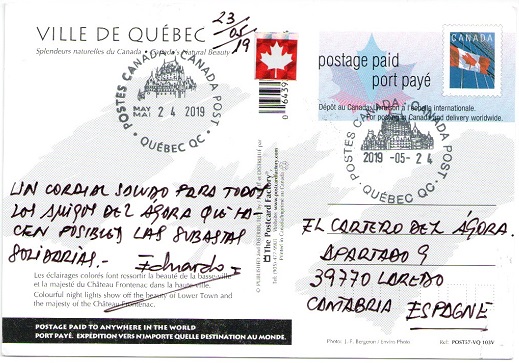 VILLE DE QUÉBEC
Splendeurs naturelles du Canada • Canada's Natural Beauty
23/05/19
POSTES CANADA • CANADA POST
MAY
MAI 24 2019
• QUÉBEC QC •
UN CORDIAL SALUDO PARA TODOS
LOS AMIGOS DEL ÁGORA QUE HA-
CEN POSIBLES LAS SUBASTAS
SOLIDARIAS.-
Eduardo
Les éclairages colorés font ressortir la beauté de la basse-ville
et la majesté du Château Frontenac dans la haute ville.
Colourful night lights show off the beauty of Lower Town and
the majesty of the Château Frontenac.
POSTAGE PAID TO ANYWHERE IN THE WORLD
PORT PAYÉ. EXPÉDITION VERS N'IMPORTE QUELLE DESTINATION AU MONDE.
The Postcard Factory
postage paid
port payé
CANADA
Dépôt au Canada. Livraison à l'échelle internationale.
For posting in Canada and delivery worldwide.
POSTES CANADA • CANADA POST
2019 -05- 24
• QUÉBEC QC •
EL CARTERO DEL ÁGORA.
APARTADO 9
39770 LAREDO
CANTABRIA ESPAGNE
Photo: J.-F. Bergeron / Enviro Photo
Ref: POST57-VQ 103V